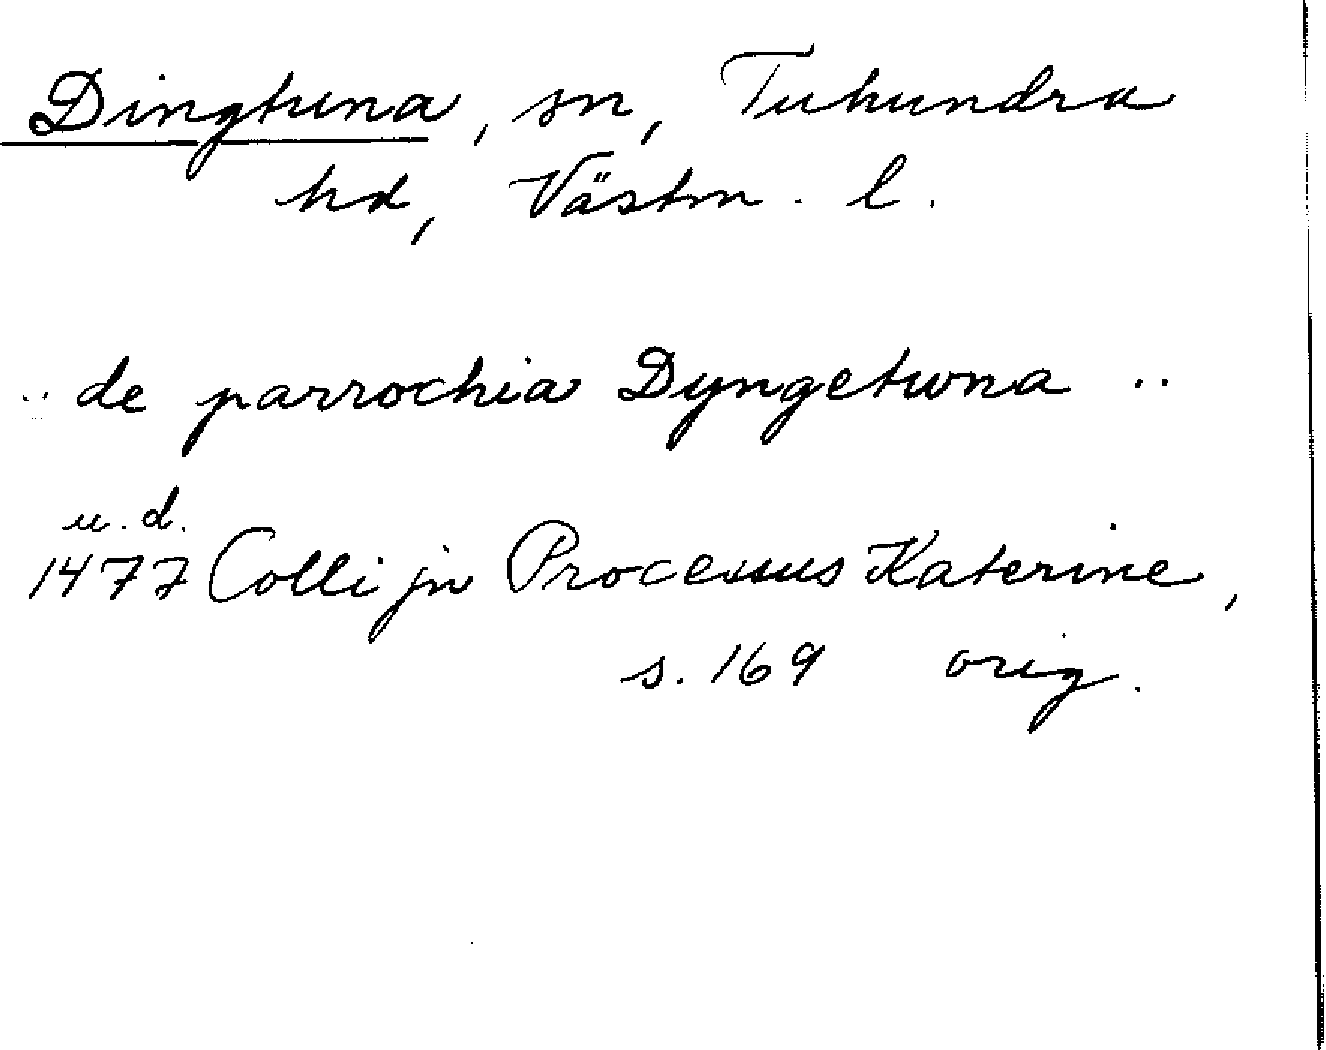 Dingtuna, sn, Tuhundra
hd, Västm. l.
.. de parrochia Dyngetwna ..
u. d.
1477 Collijn Processus Katerine,
s. 169 orig.